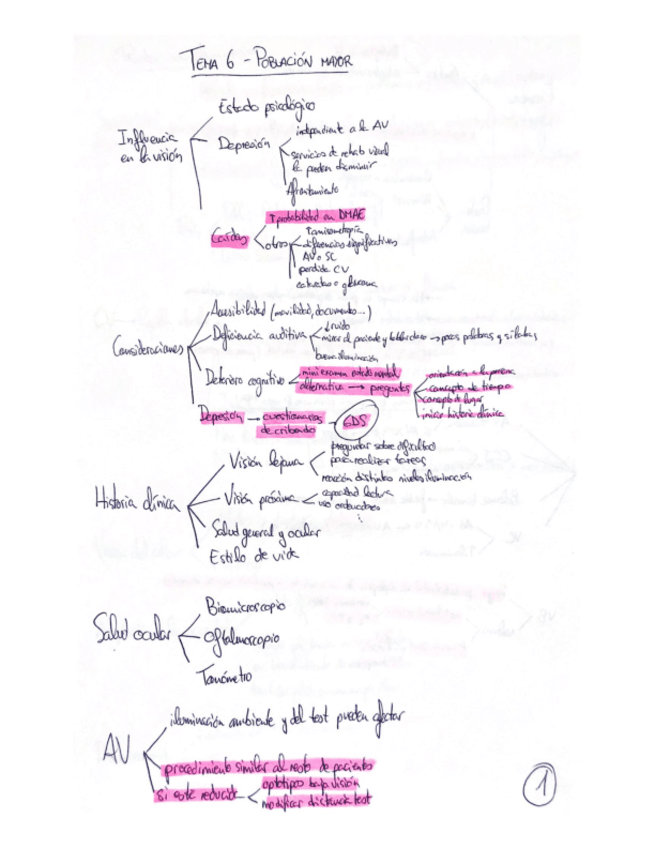 TEMA 6 - POBLACIÓN MAYOR
Influencia en la visión
Estado psicológico
Depresión
independiente a la AV
servicios de rehab visual
le pueden disminuir
Afrontamiento
Caídas
↑ probabilidad en DMAE
otros
↑ anisometropía
diferencias significativas
AV o SC
perdida CV
cataratas o glaucoma
Consideraciones
Accesibilidad (movilidad, documento...)
Deficiencia auditiva
↓ ruido
mirar al paciente y hablar claro → pocas palabras y sílabas
buena iluminación
Deterioro cognitivo
mini examen estado mental
alternativa → preguntas
orientación a la persona
concepto de tiempo
concepto de lugar
iniciar historia clínica
Depresión → cuestionarios de cribado → GDS
Historia clínica
Visión lejana
preguntar sobre dificultad
para realizar tareas
reacción distintos niveles iluminación
Visión próxima
capacidad lectura
uso ordenadores
Salud general y ocular
Estilo de vida
Salud ocular
Biomicroscopio
Oftalmoscopio
Tonómetro
AV
iluminación ambiente y del test pueden afectar
procedimiento similar al resto de pacientes
si este reducida
optotipos baja visión
modificar distancia test
1